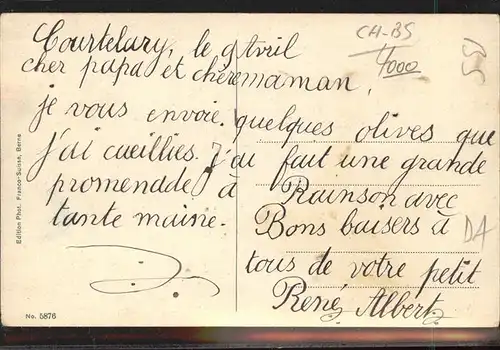 Courtelary, le 9 Avril
cher papa et chère maman,
je vous envoie quelques olives que
j'ai cueillies. J'ai fait une grande
promenadde à Rainson avec
tante maine. Bons baisers à
tous de votre petit
René Albert
CH-BS
4000
DA
Edition Phot. Franco-Suisse, Berne
No. 5876